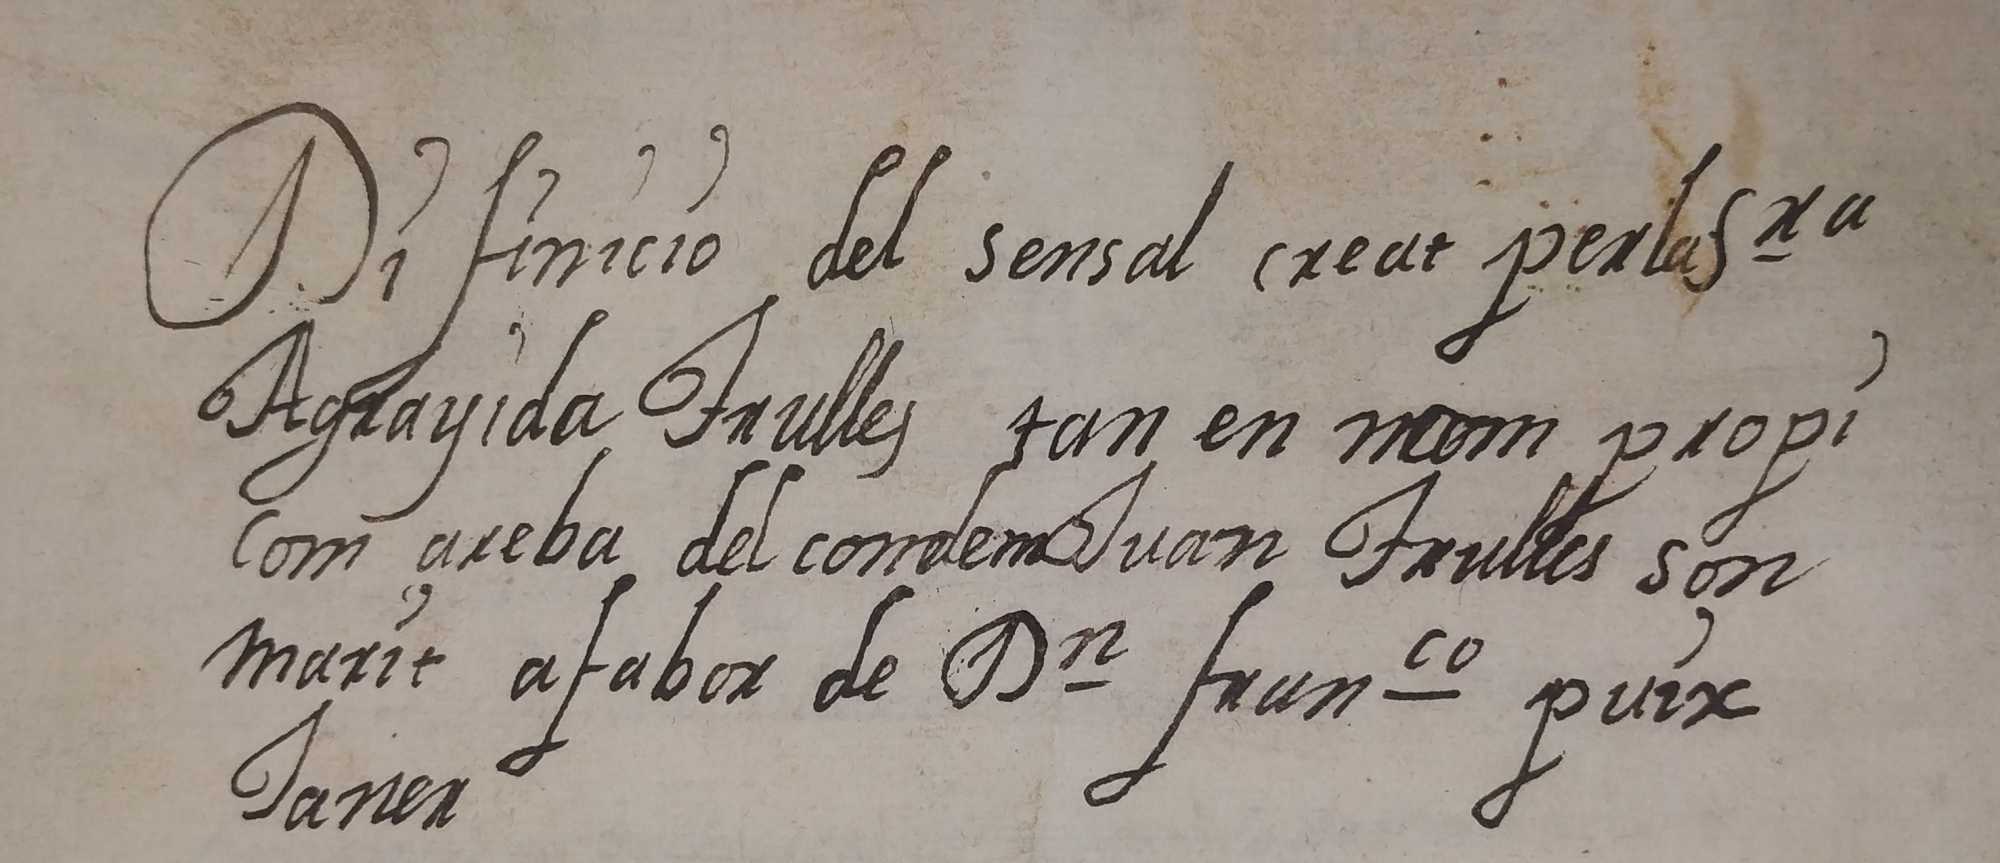 Difinicio del sensal creat per la Sra
Agrayida Trulles tan en nom propi
com areba del condem Juan Trulles son
marit a fabor de Dn Franco puix
Janer